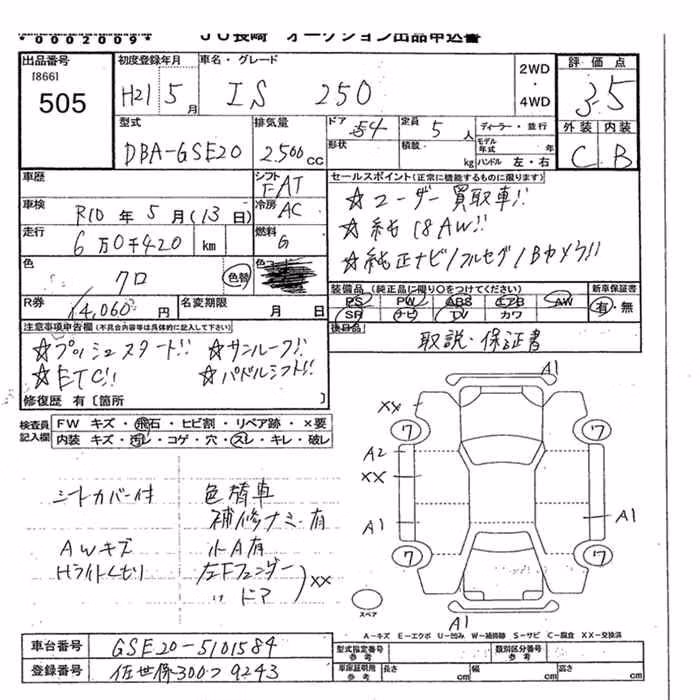 *0002009* JU長崎 オークション出品申込書
出品番号
[866]
505
初度登録年月 H21 年 5月
車名・グレード IS 250
2WD・4WD
評価点 3.5
外装 C 内装 B
型式 DBA-GSE20
排気量 2500cc
ドア 4
形状
定員 5人
積載 kg
ディーラー・並行
モデル年式 年
ハンドル 左・右
車歴
シフト FAT
車検 R10年5月(13日)
冷房 AC
走行 6万0千420 km
燃料 G
色 クロ 色替
色コー
R券 14,060円
名変期限 月 日
セールスポイント(正常に機能するものに限ります)
☆ユーザー買取車!!
☆純18AW!!
☆純正ナビ/フルセグ/Bカメラ!!
装備品(純正品に限り○をつけてください)
PS PW ABS エアB AW
SR ナビ TV カワ
新車保証書 有・無
後日品 取説・保証書
注意事項申告欄(不具合内容等は具体的に記入して下さい)
☆プッシュスタート!! ☆サンルーフ!!
☆ETC!! ☆パドルシフト!!
修復歴 有〔箇所 〕
検査員記入欄
FW キズ・飛石・ヒビ割・リペア跡・×要
内装 キズ・汚レ・コゲ・穴・スレ・キレ・破レ
シートカバー付 色替車
補修ナミ有
AWキズ 小A有
Hライトくもり 左Fフェンダー
〃 ドア
XX
A1
XX
7 7
A2
XX
A1 A1
7 7
スペア
A1
A-キズ E-エクボ U-凹み W-補修跡 S-サビ C-腐食 XX-交換済
車台番号 GSE20-5101584
登録番号 佐世保300つ9243
型式指定番号 参考
類別区分番号 参考
車庫証明用 参考 長さ cm 幅 cm 高さ cm